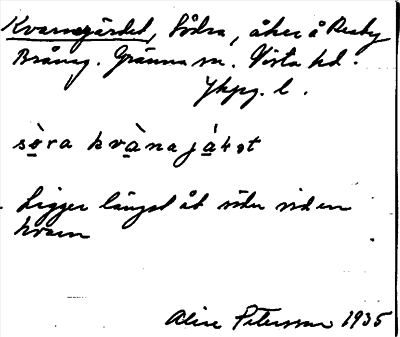 Kvarngärdet, Södra, åker å Reaby
Bråneg. Gränna sn. Vista hd.
Jkpg. l.
sò̤ra kvà̤najá̤ₜət
Ligger längst åt söder vid en
kvarn
Alice Petersson 1935